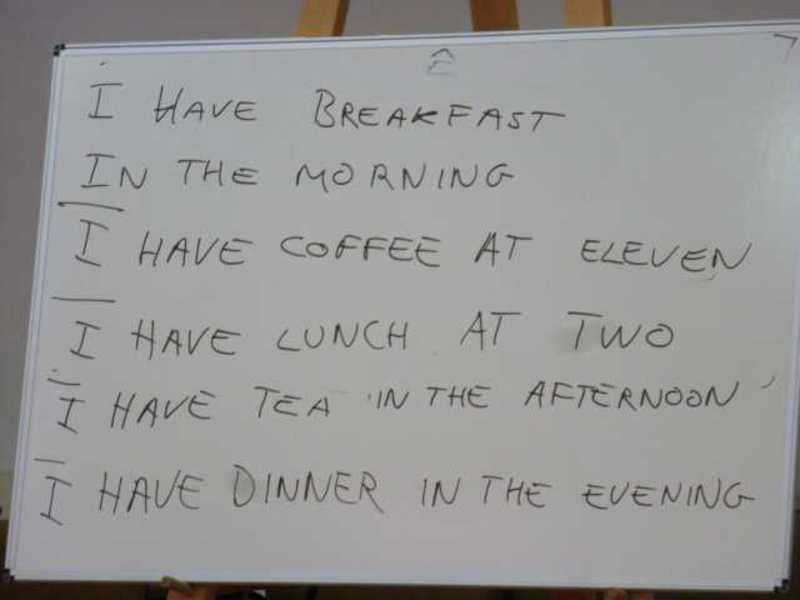 I HAVE BREAKFAST
IN THE MORNING
I HAVE COFFEE AT ELEVEN
I HAVE LUNCH AT TWO
I HAVE TEA IN THE AFTERNOON
I HAVE DINNER IN THE EVENING